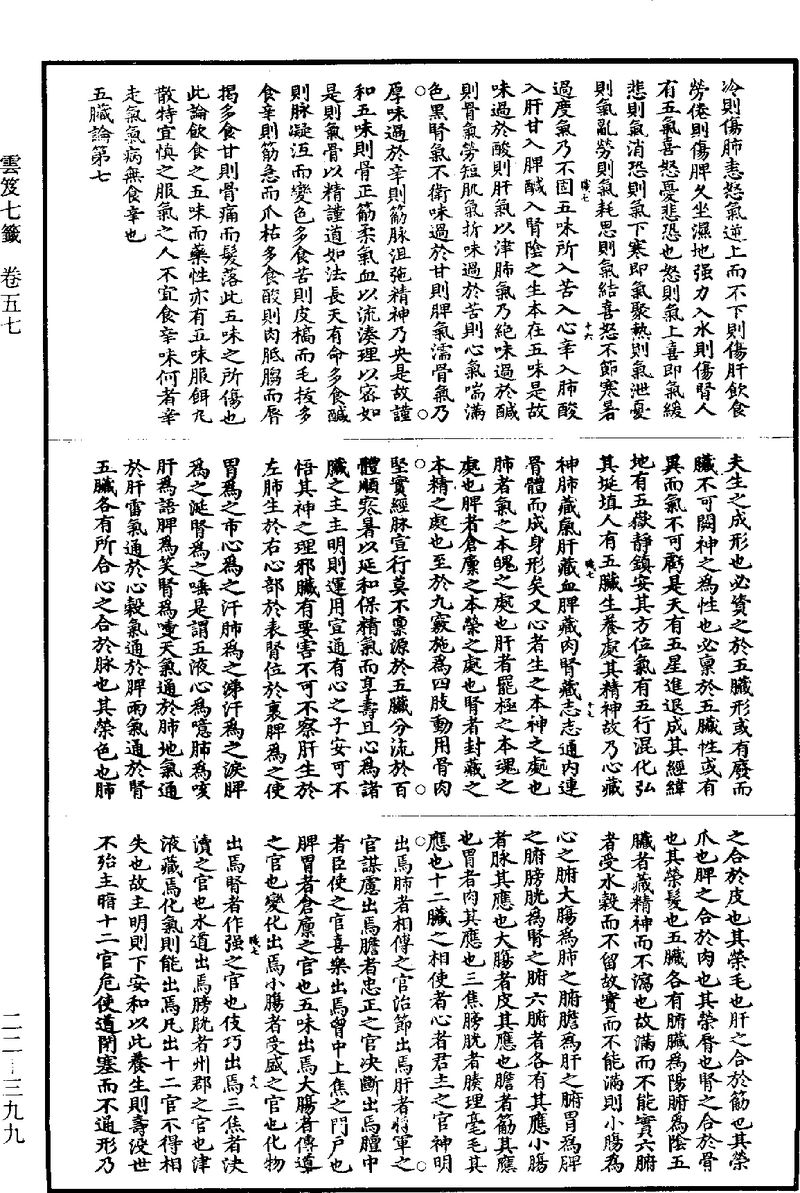 冷則傷肺恚怒氣逆上而不下則傷肝飲食
勞倦則傷脾久坐濕地强力入水則傷腎人
有五氣喜怒憂悲恐也怒則氣上喜即氣緩
悲則氣消恐則氣下寒即氣聚熱則氣泄憂
則氣亂勞則氣耗思則氣結喜怒不節寒暑
職七
十六
過度氣乃不固五味所入苦入心辛入肺酸
入肝甘入脾醎入腎陰之生本在五味是故
味過於酸則肝氣以津肺氣乃絶味過於醎
則骨氣勞短肌氣折味過於苦則心氣喘滿
色黑腎氣不衛味過於甘則脾氣濡骨氣乃
厚味過於辛則筋脉沮弛精神乃央是故謹
和五味則骨正筋柔氣血以流湊理以密如
是則氣骨以精謹道如法長天有命多食醎
則脉凝沍而變色多食苦則皮槁而毛拔多
食辛則筋急而爪枯多食酸則肉胝䐢而脣
揭多食甘則骨痛而髮落此五味之所傷也
此論飲食之五味而藥性亦有五味服餌凡
散特宜慎之服氣之人不宜食辛味何者辛
走氣氣病無食辛也
五臓論第七
夫生之成形也必資之於五臓形或有廢而
臓不可闕神之為性也必禀於五臓性或有
異而氣不可虧是天有五星進退成其經緯
地有五嶽静鎮安其方位氣有五行混化弘
其埏埴人有五臓生養處其精神故乃心藏
職七
十七
神肺藏氣肝藏血脾藏肉腎藏志志通内連
骨體而成身形矣又心者生之本神之處也
肺者氣之本魄之處也肝者罷極之本魂之
處也脾者倉廪之本榮之處也腎者封藏之
本精之處也至於九竅施為四肢動用骨肉
堅實經脉宣行莫不禀源於五臓分流於百
體順寒暑以延和保精氣而享壽且心為諸
臓之主主明則運用宣通有心之子安可不
悟其神之理邪臓有要害不可不察肝生於
左肺生於右心部於表腎位於裏脾為之使
胃為之市心為之汗肺為之涕肝為之淚脾
為之涎腎為之唾是謂五液心為噫肺為咳
肝為語脾為笑腎為嚏天氣通於肺地氣通
於肝雷氣通於心穀氣通於脾雨氣通於腎
五臓各有所合心之合於脉也其榮色也肺
之合於皮也其榮毛也肝之合於筋也其榮
爪也脾之合於肉也其榮脣也腎之合於骨
也其榮髮也五臓各有腑臓為陽腑為陰五
臓者藏精神而不瀉也故滿而不能實六腑
者受水穀而不留故實而不能滿則小腸為
心之腑大腸為肺之腑膽為肝之腑胃為脾
之腑膀胱為腎之腑六腑者各有其應小腸
者脉其應也大腸者皮其應也膽者筋其應
也胃者肉其應也三焦膀胱者腠理毫毛其
應也十二臓之相使者心者君主之官神明
出焉肺者相傅之官治節出焉肝者將軍之
官謀慮出焉膽者忠正之官决斷出焉膻中
者臣使之官喜樂出焉胷中上焦之門戶也
脾胃者倉廪之官也五味出焉大腸者傳導
之官也變化出焉小腸者受盛之官也化物
職七
十八
出焉腎者作强之官也伎巧出焉三焦者决
瀆之官也水道出焉膀胱者州郡之官也津
液藏焉化氣則能出焉凡出十二官不得相
失也故主明則下安和以此養生則壽没世
不殆主暗十二官危使道閉塞而不通形乃
雲笈七籤 卷五七
二二-三九九